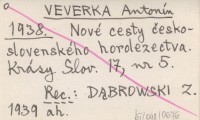 VEVERKA Antonín
1938. Nové cesty česko-
slovenského horolezectva.
Krásy Slov. 17, nr 5.
Rec.: DĄBROWSKI Z.
1939 ah.